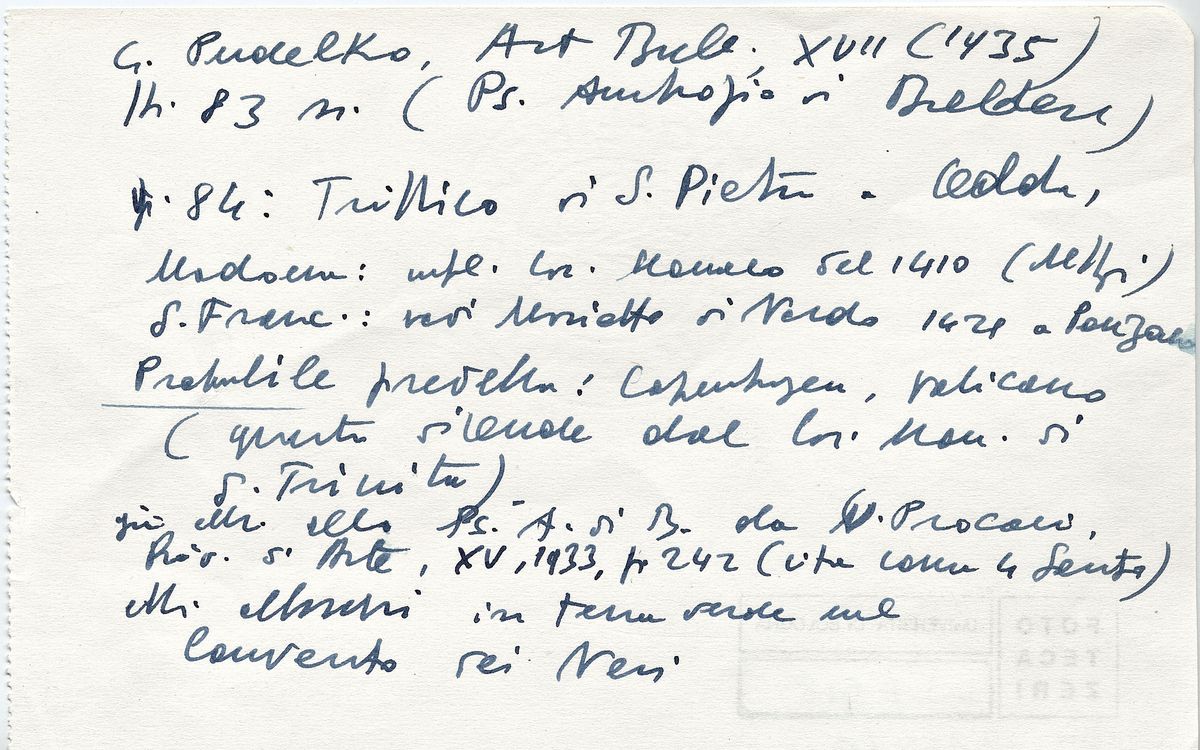 G. Pudelko, Art Bull., XVII (1935)
p. 83 n. (Ps. Ambrogio di Baldese)
p. 84: Trittico di S. Pietro a Cedda,
Madonna: infl. Lor. Monaco del 1410
S. Franc.: vedi Mariotto di Nardo 1421 a Panzano
Probabile predella: Copenhagen, Vaticano
(questa discende dal Lor. Mon. di
S. Trinita)
già attr. allo Ps. A. di B. da U. Procacci,
Riv. d'Arte, XV, 1933, p 242 (vita come la Santa)
attr. affreschi in terra verde nel
Convento dei Neri
FOTO
TECA
ZERI